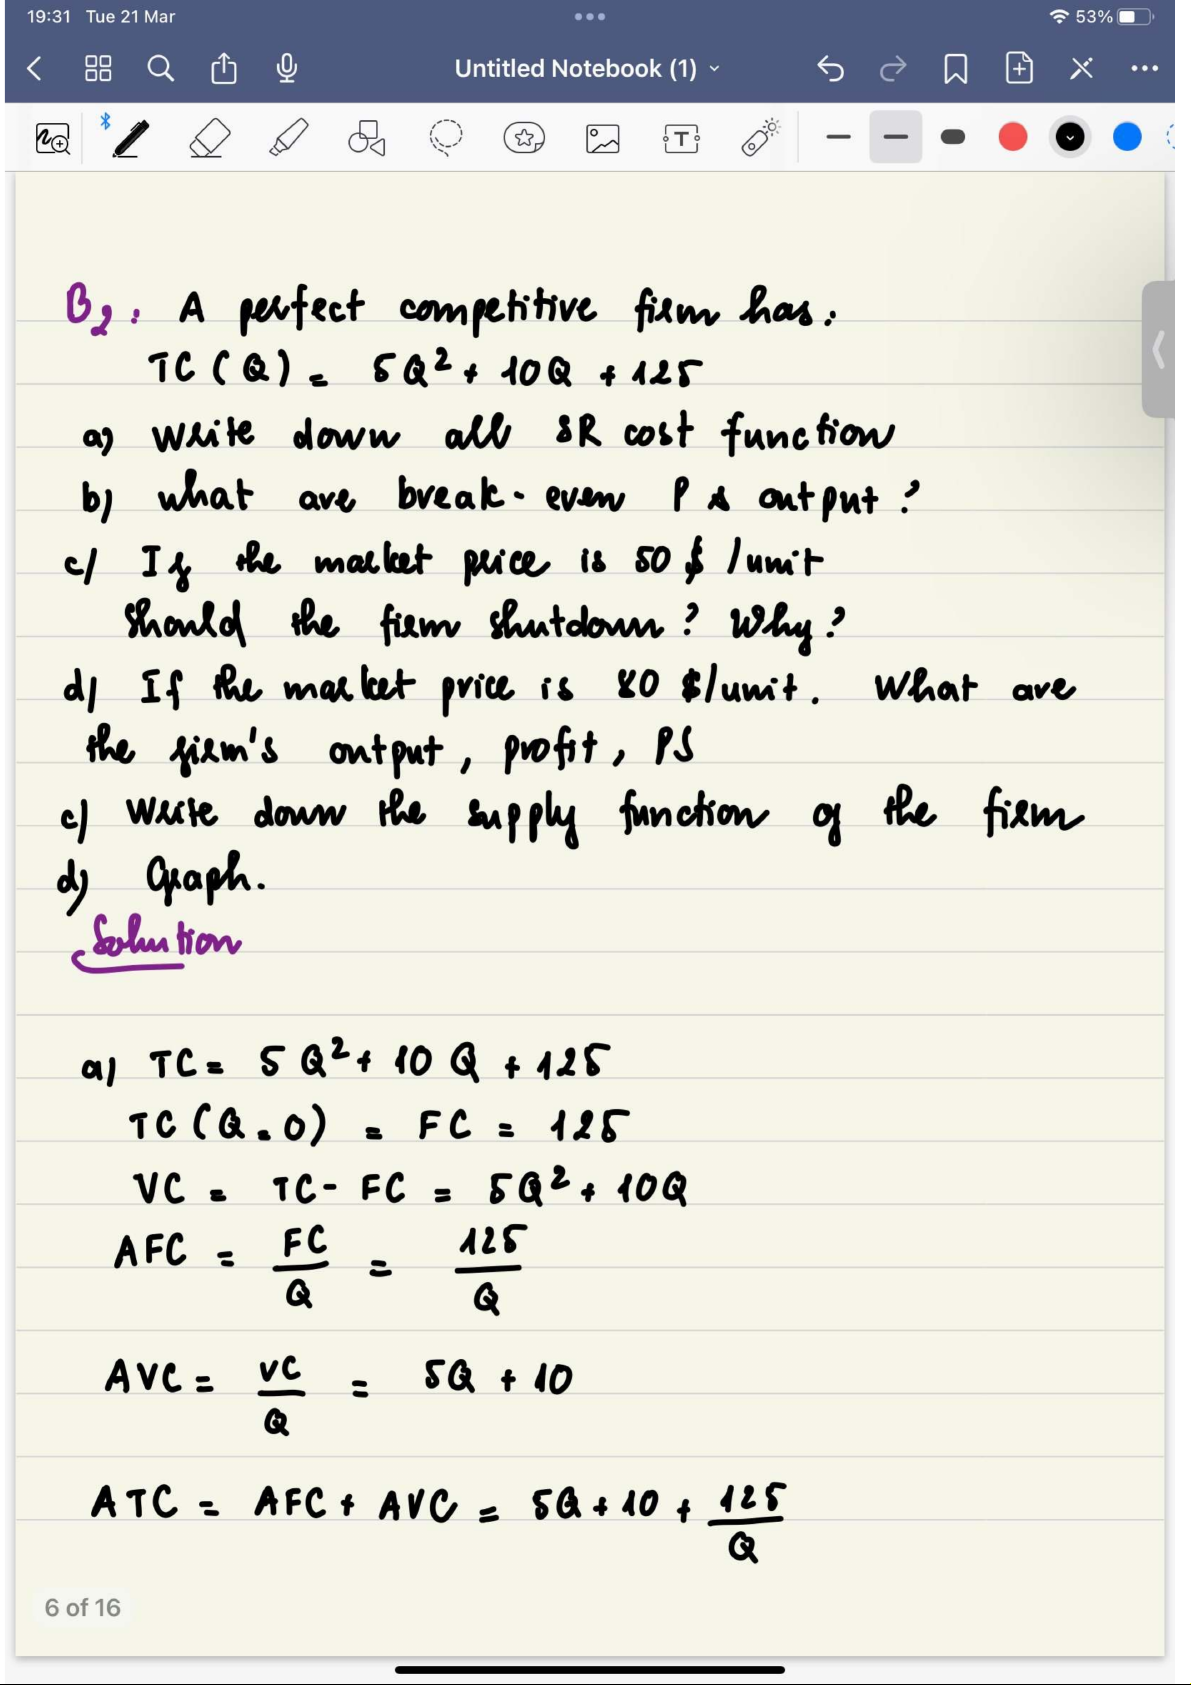 19:31 Tue 21 Mar
53%
Untitled Notebook (1)
T
B2: A perfect competitive firm has:
TC(Q) = 5Q² + 10Q + 125
a) Write down all SR cost function
b) what are break-even P & output?
c/ If the market price is 50 $/unit
should the firm shutdown? Why?
d/ If the market price is 80 $/unit. What are
the firm's output, profit, PS
c) Write down the supply function of the firm
d) Graph.
Solution
a) TC = 5Q² + 10Q + 125
TC(Q=0) = FC = 125
VC = TC - FC = 5Q² + 10Q
AFC = FC/Q = 125/Q
AVC = VC/Q = 5Q + 10
ATC = AFC + AVC = 5Q + 10 + 125/Q
6 of 16